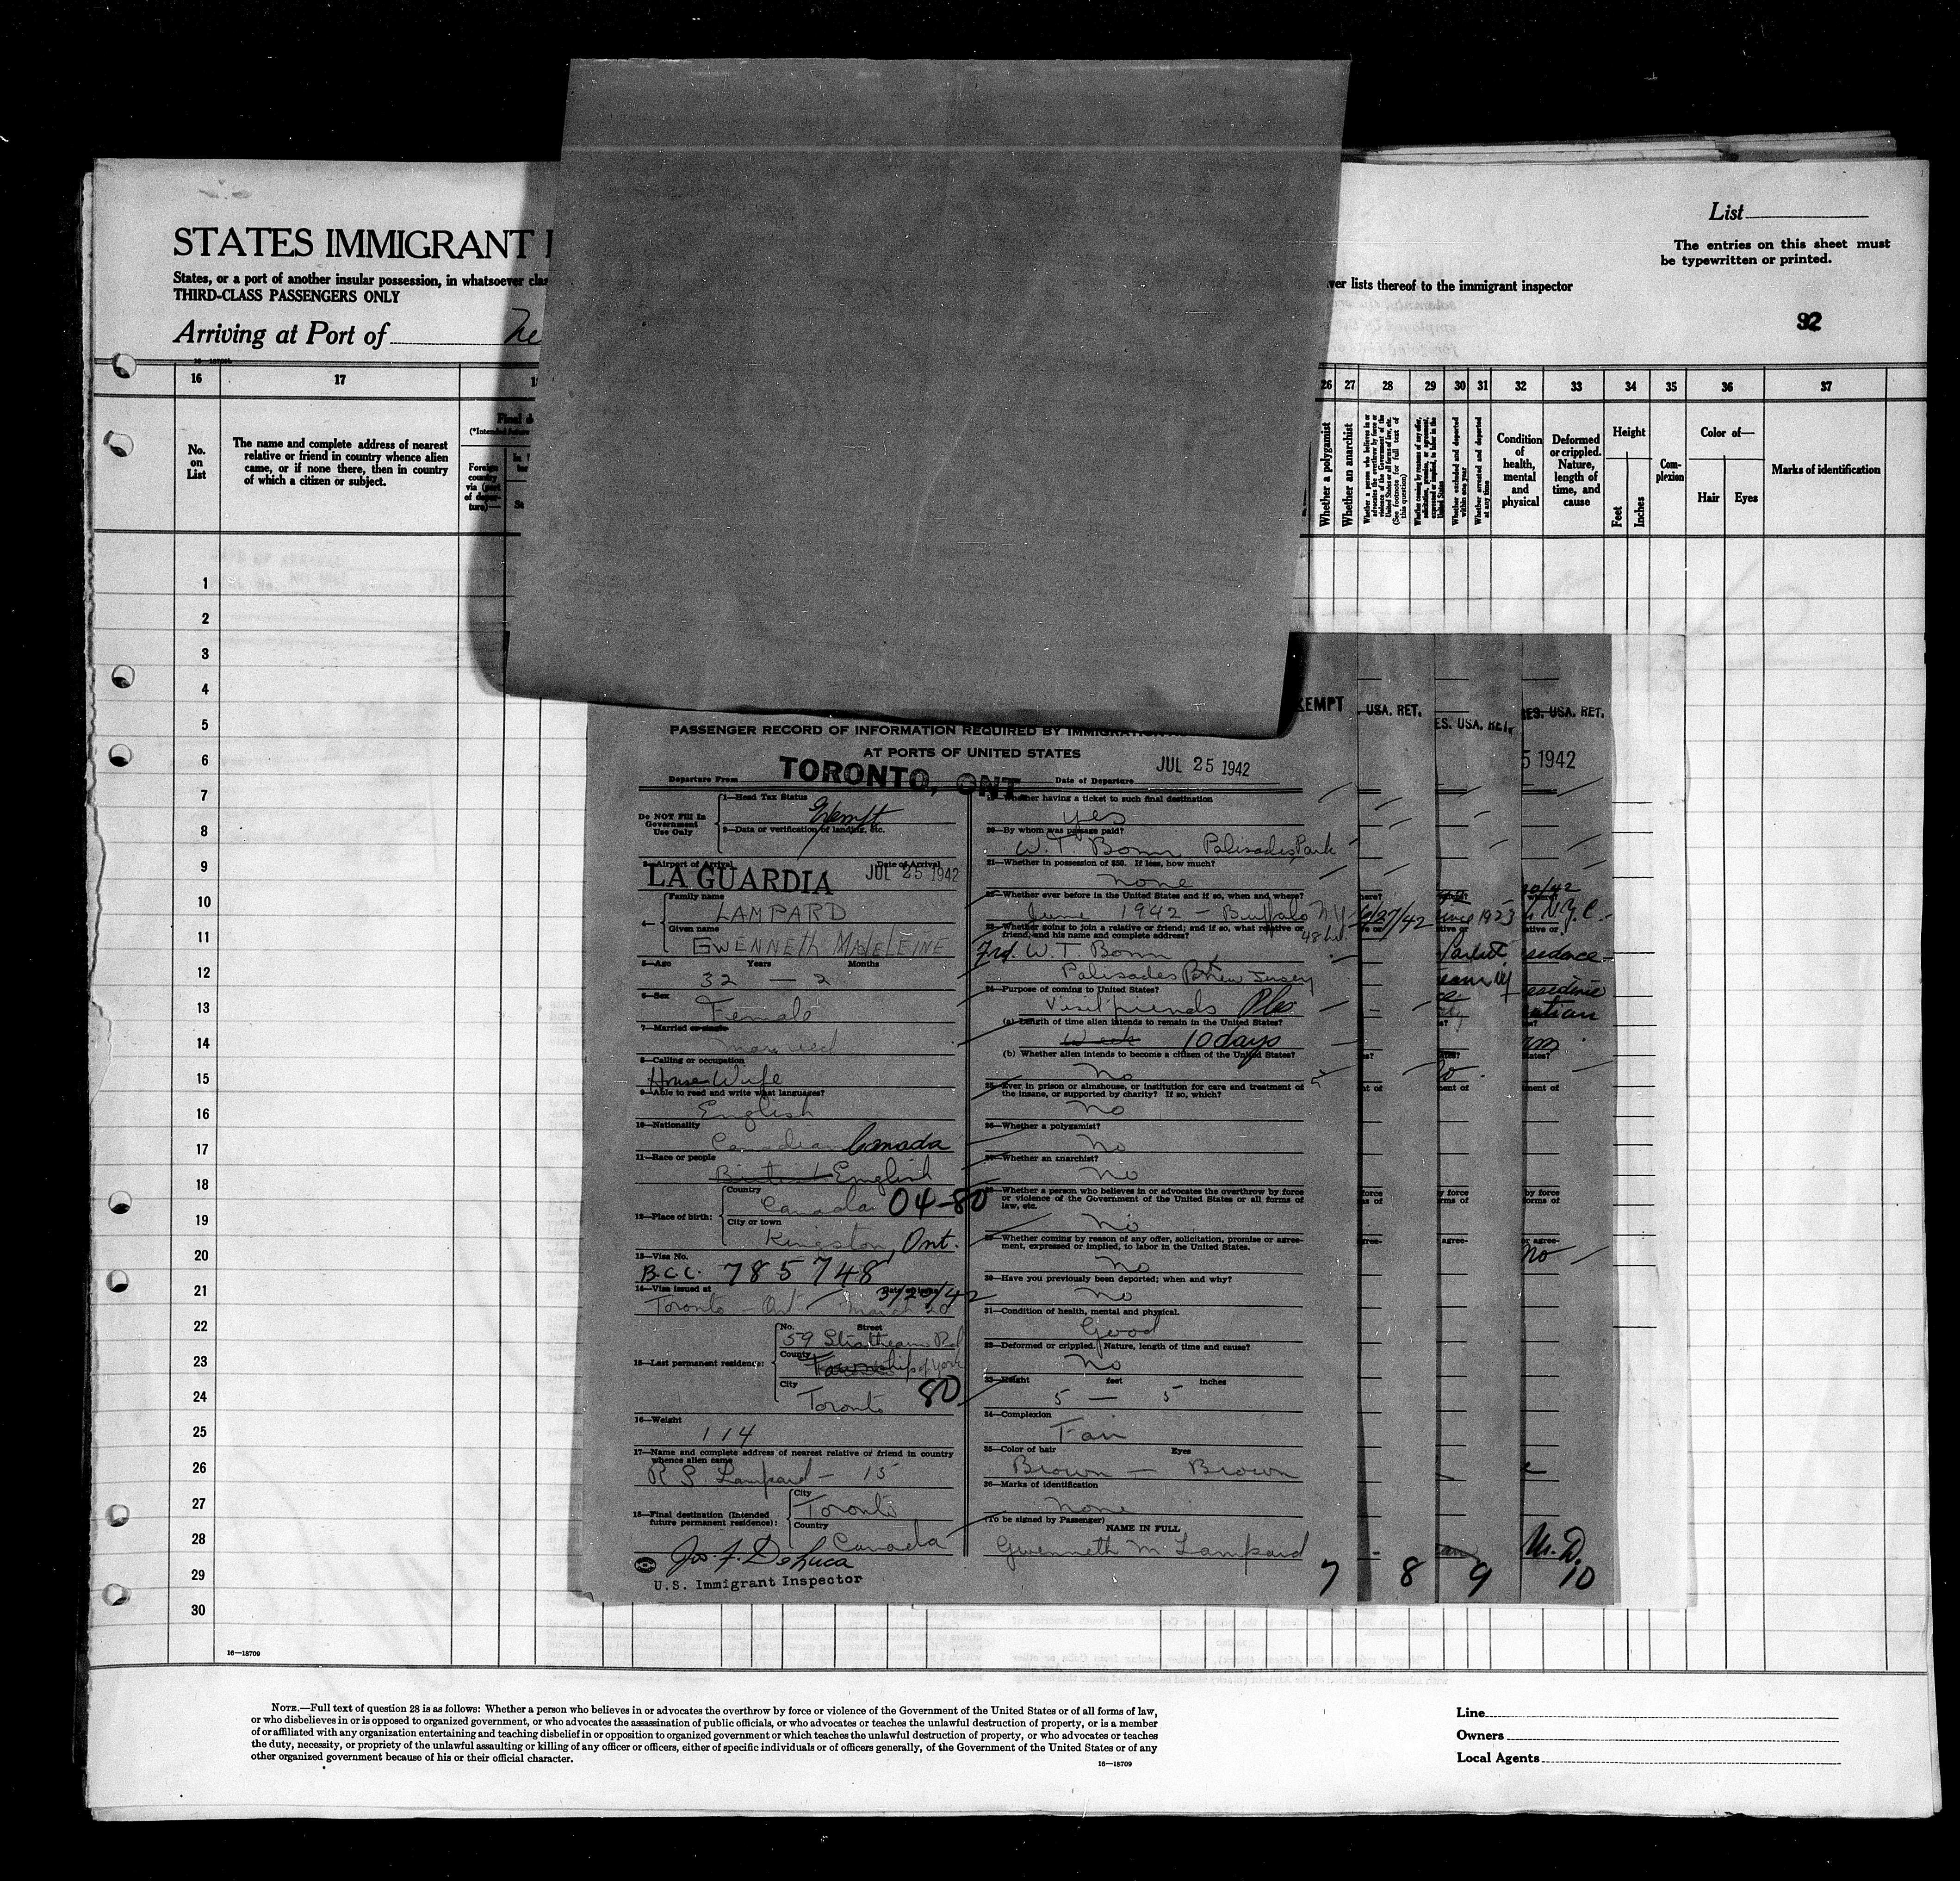 STATES IMMIGRANT
States, or a port of another insular possession, in whatsoever
THIRD-CLASS PASSENGERS ONLY
Arriving at Port of
lists thereof to the immigrant inspector
List
The entries on this sheet must
be typewritten or printed.
92
16 17 26 27 28 29 30 31 32 33 34 35 36 37
No.
on
List
The name and complete address of nearest
relative or friend in country whence alien
came, or if none there, then in country
of which a citizen or subject.
Foreign
country
via (port
of depar-
ture)—
Whether a polygamist
Whether an anarchist
Whether a person who believes in or
advocates the overthrow by force or
violence of the Government of the
United States or all forms of law, etc.
(See footnote for full text of
this question)
Whether coming by reason of any offer,
solicitation, promise, or agreement,
expressed or implied, to labor in the
United States
Whether excluded and deported
within one year
Whether arrested and deported
at any time
Condition
of
health,
mental
and
physical
Deformed
or crippled.
Nature,
length of
time, and
cause
Height
Feet
Inches
Com-
plexion
Color of—
Hair
Eyes
Marks of identification
1
2
3
4
5
6
7
8
9
10
11
12
13
14
15
16
17
18
19
20
21
22
23
24
25
26
27
28
29
30
PASSENGER RECORD OF INFORMATION REQUIRED BY
AT PORTS OF UNITED STATES
Departure From TORONTO, ONT. Date of Departure JUL 25 1942
Do NOT Fill In
Government
Use Only
1—Head Tax Status
Exempt
2—Data or verification of landing, etc.
3—Airport of Arrival Date of Arrival
LA GUARDIA JUL 25 1942
4—
Family name
LAMPARD
Given name
GWENNETH MADELEINE
5—Age Years Months
32 — 2
6—Sex
Female
7—Married or single
Married
8—Calling or occupation
House Wife
9—Able to read and write what languages?
English
10—Nationality
Canadian Canada
11—Race or people
British English
12—Place of birth:
Country
Canada 04-80
City or town
Kingston, Ont.
13—Visa No.
B.C.C. 785748
14—Visa issued at Date of issue
3/20/42
Toronto — Ont. March 20
15—Last permanent residence:
No. Street
59 Strathearn Rd
County
Township of York
City
Toronto 80
16—Weight
114
17—Name and complete address of nearest relative or friend in country
whence alien came
R S Lampard — 15
18—Final destination (Intended
future permanent residence):
City
Toronto
Country
Canada
Jos. F. DeLuca
U.S. Immigrant Inspector
19—Whether having a ticket to such final destination
Yes
20—By whom was passage paid?
W. T. Bonn Palisades Park
21—Whether in possession of $50. If less, how much?
none
22—Whether ever before in the United States and if so, when and where?
June 1942 — Buffalo N.Y.
48 hr.
23—Whether going to join a relative or friend; and if so, what relative or
friend, and his name and complete address?
Frd. W. T. Bonn
Palisades Pk New Jersey
24—Purpose of coming to United States?
Visit friends Pleo
(a) Length of time alien intends to remain in the United States?
Week 10 days
(b) Whether alien intends to become a citizen of the United States?
No
25—Ever in prison or almshouse, or institution for care and treatment of
the insane, or supported by charity? If so, which?
No
26—Whether a polygamist?
No
27—Whether an anarchist?
No
28—Whether a person who believes in or advocates the overthrow by force
or violence of the Government of the United States or all forms of
law, etc.
No
29—Whether coming by reason of any offer, solicitation, promise or agree-
ment, expressed or implied, to labor in the United States.
No
30—Have you previously been deported; when and why?
No
31—Condition of health, mental and physical.
Good
32—Deformed or crippled. Nature, length of time and cause?
No
33—Height feet inches
5 — 5
34—Complexion
Fair
35—Color of hair Eyes
Brown — Brown
36—Marks of identification
None
(To be signed by Passenger)
NAME IN FULL
Gwenneth M Lampard
7
USA. RET.
6/27/42
8
ES. USA. RET.
since 1923
9
RES. USA. RET.
5 1942
N.Y.C.
No
10
16—18709
NOTE.—Full text of question 28 is as follows: Whether a person who believes in or advocates the overthrow by force or violence of the Government of the United States or of all forms of law,
or who disbelieves in or is opposed to organized government, or who advocates the assassination of public officials, or who advocates or teaches the unlawful destruction of property, or is a member
of or affiliated with any organization entertaining and teaching disbelief in or opposition to organized government or which teaches the unlawful destruction of property, or who advocates or teaches
the duty, necessity, or propriety of the unlawful assaulting or killing of any officer or officers, either of specific individuals or of officers generally, of the Government of the United States or of any
other organized government because of his or their official character.
16—18709
Line
Owners
Local Agents